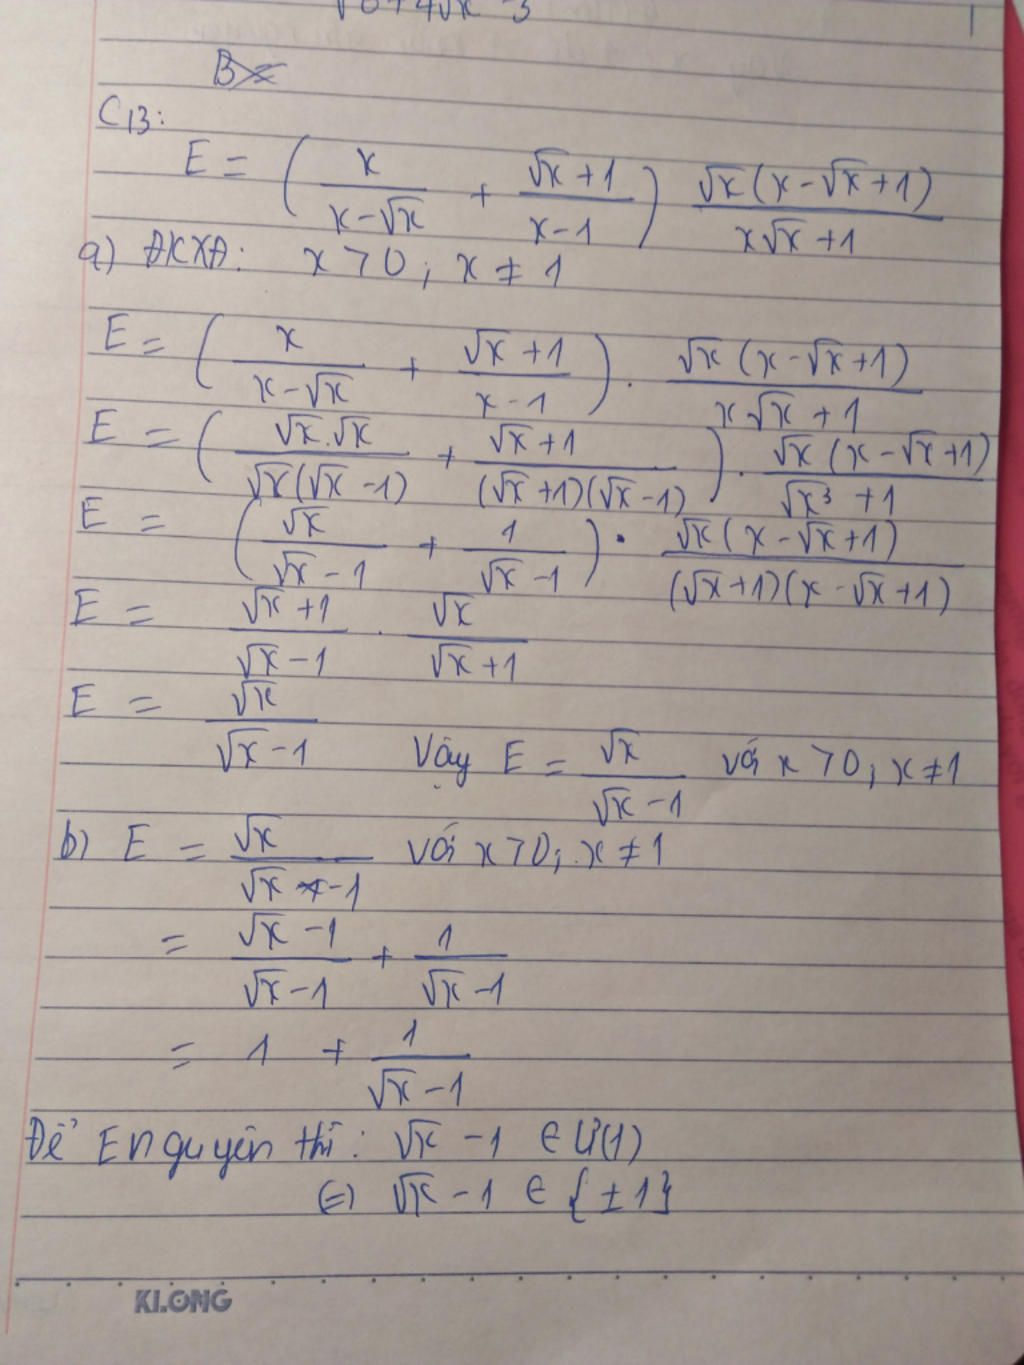 √6+4√x-3
B=
C13:
E = ( x/(x-√x) + (√x+1)/(x-1) ) √x(x-√x+1)/(x√x+1)
a) ĐKXĐ: x>0; x≠1
E = ( x/(x-√x) + (√x+1)/(x-1) ) . √x(x-√x+1)/(x√x+1)
E = ( √x.√x/(√x(√x-1)) + (√x+1)/((√x+1)(√x-1)) ) . √x(x-√x+1)/(√x³+1)
E = ( √x/(√x-1) + 1/(√x-1) ) . √x(x-√x+1)/((√x+1)(x-√x+1))
E = (√x+1)/(√x-1) . √x/(√x+1)
E = √x/(√x-1) Vậy E = √x/(√x-1) với x>0; x≠1
b) E = √x/(√x-1) với x>0; x≠1
= (√x-1)/(√x-1) + 1/(√x-1)
= 1 + 1/(√x-1)
Để E nguyên thì: √x-1 ∈ Ư(1)
(=) √x-1 ∈ {±1}
KLONG